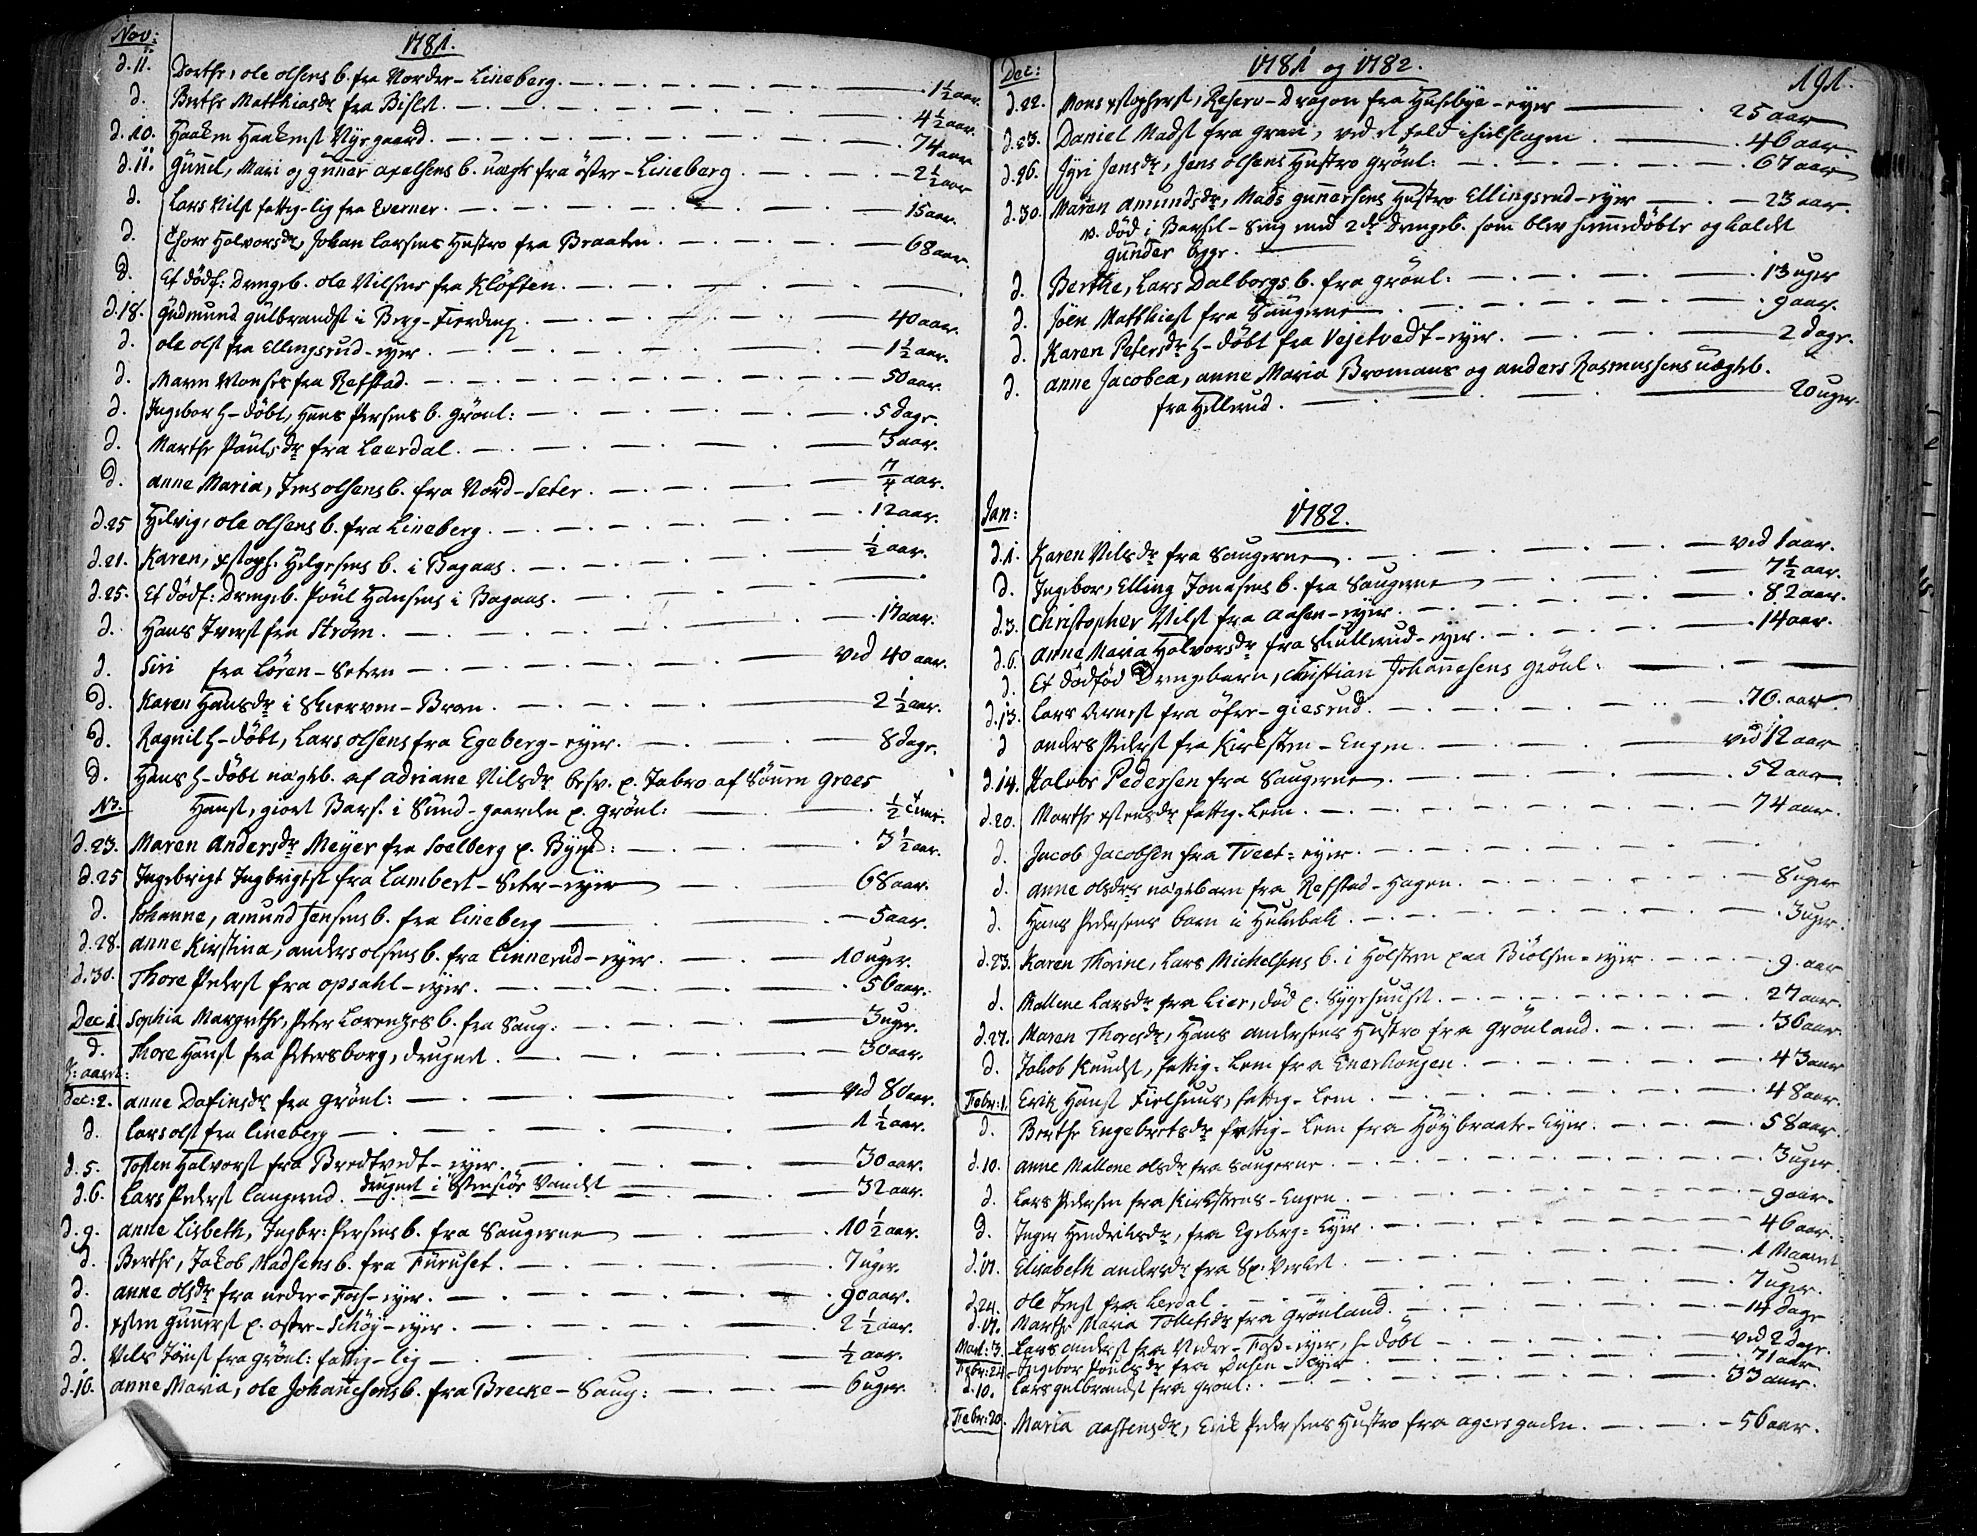 Nov: 1781.
d.11. Dorthe, ole olsens b. fra Nordre-Lineberg. 1 1/2 aar.
d. Berthe Matthiasdr fra Bislet. 4 1/2 aar.
d.10. Haaken Haakenst Nyegaard. 74 aar
d.11. Gunnil, Mari og gunner axelsens b. uægte fra östre-Lineberg. 2 1/2 aar
d. Lars Nilst fattig-lig fra Everner. 15 aar.
d. Thore Halvorsdr, Johan Larsens Hustro fra Braaten. 68 aar.
d. Et dödf: Drengeb. ole Nilsens fra Klöften.
d.18. Gudmund gulbrandst i Berg-Fierding. 40 aar.
d. ole olst fra Ellingsrud-eyer. 1 1/2 aar.
d. Maren Monses fra Refstad. 50 aar.
d. Ingebor h-döbt, Hans Persens b. Grönl: 5 dage.
d. Marthe Poulsdr fra Leerdal. 3 aar.
d. anne Maria, Jens olsens b. fra Nord-Seter. 7/4 aar.
d.25 Helvig, ole olsens b. fra Lineberg. 12 aar.
d.21. Karen, xstoph. Helgesens b. i Bagaas. 1/2 aar.
d.25. Et dödf: Drengeb. Poul Hansens i Bagaas.
d. Hans Iverst fra Ström. 17 aar.
d. Siri fra Lören-Seteren ved 40 aar.
d. Karen Hansdr i Skierven-Braen. 2 1/2 aar.
d. Ragnil h-döbt, Lars olsens fra Egeberg-eyer. 8 dage.
d. Hans h-döbt uægteb. af adriane Nilsdr besv. p. Jabro af Sönnen Grees
N3. Hanst, giort Bars. i Sund-gaarden p. Grönl: 1/2 Time.
d.23. Maren Andersdr Meyer fra Soelberg p. Byns: 3 1/2 aar.
d.25 Ingebrigt Ingbrigtst fra Lambert-Seter-eyer 68 aar.
d. Johanne, amund Jensens b. fra Lineberg 5 aar.
d.28. anne Kirstina, anders olsens b. fra Linnerud-eyer. 10 uger.
d.30. Thore Pederst fra opsahl-eyer. 56 aar.
Dec 1. Sophia Margrethe, Peter Lorenzes b. fra Saug: 3 uger.
d. Thore Hanst fra Petersborg, druknet. 30 aar.
K: aaret:
Dec: 2. anne Dafinsdr fra Grönl: ved 80 aar.
d. Lars olst fra Lineberg 1 1/2 aar.
d.5. Tosten Halvorst fra Bredtvedt-eyer. 30 aar.
d.6. Lars Pederst Langerud. druknet i Östensiös Vandet 32 aar.
d.9. anne Lisbeth, Ingbr: Persens b. fra Saugerne 10 1/2 aar.
d. Berthe, Jakob Madsens b. fra Furuset. 7 uger.
d. anne olsdr fra nedre-Foss-eyer. 90 aar.
d. xsten Gunnerst p. ostre-Schöy-eyer. 2 1/2 aar.
d. Nils Jönst fra Grönl: fattig-lig 1/2 aar.
d.16. anne Maria, ole Johannesens b. fra Brecke-Saug: 6 uger.
Dec: 1781 og 1782. 191.
d.22. Mons xstopherst, Reserv-Dragon fra Husebye-eyer 25 aar
d.23. Daniel Madst fra Gran, ved et fald ihielslagen 46 aar.
d.26. Jyri Jensdr, Jens olsens Hustro Grönl: 67 aar
d.30. Maren amundsdr, Mads gunnersens Hustro Ellingsrud-eyer 23 aar.
n. död i Barsel-Seng med 2de Drengeb. som blev hiemmedöbte og kaldet
Gunder begge.
d. Berthe, Lars Dalborgs b. fra Grönl: 13 uger
d. Joen Matthiest fra Saugerne 9 aar.
d. Karen Petersdr h-döbt fra Vejetvedt-eyer. 2 dage.
d. anne Jacobea, anne Maria Bromans og anders Rasmussens uægteb.
fra Hellerud. 20 uger.
Jan: 1782.
d.1. Karen Nilsdr fra Saugerne ved 1 aar.
d. Ingebor, Elling Jonasens b. fra Saugerne 7 1/2 aar.
d.3. Christopher Nilst fra aasen-eyer. 82 aar.
d.6. Anne Maria Halvorsdr fra Skullerud-eyer. 14 aar.
d. Et dödföd Drengebarn, Christian Johannesens Grönl:
d.13. Lars Arnest fra öfre-giesrud. 70. aar
d anders Pederst fra Kirksten-Engen. ved 12 aar
d.14. Kalobs Pedersen fra Saugerne 52 aar
d.20. Marthe xstensdr fattig-Lem. 74 aar.
d. Jacob Jacobsen fra Tveet-eyer.
d. anne olsdrs uægtebarn fra Refstad-Hagen. 8 uger
d. Hans Pedersens barn i Hulebak. 3 uger.
d.23. Karen Thorine, Lars Michelsens b. i Holsten paa Biölsen-eyer. 9. aar
d. Mallene Larsdr fra Lier, död p. Sygehuuset. 27 aar.
d.27. Maren Thoresdr, Hans andersens Hustro fra Grönland. 36 aar.
d. Jakob Knudst, fattig-Lem fra Enerhougen. 43 aar
Febr: 1. Erik Hanst Fielhuus, fattig-Lem. 48 aar.
d. Berthe Engebretsdr fattig-Lem fra Höybraate-Eyer. 58 aar.
d.10. anne Mallene olsdr fra Saugerne. 3 uger.
d. Lars Pedersen fra Kirkstens-Engen. 9 aar.
d. Inger Hendriksdr, fra Egeberg-Eyer. 46 aar.
d.17. Elisabeth andersdr fra Sp: Verket. 1 Maanet
d.24. ole Jenst fra Lerdal. 7 uger.
d.17. Marthe Maria Tollefsdr fra Grönland. 14 dage
Mart: 3. Lars anderst fra Nedre-Foss-eyer, h-döbt ved 2 dage.
Febr: 24. Ingebor Poulsdr fra Ensen-eyer 71 aar.
d.10. Lars gulbrandst fra Grönl: 33 aar.
Febr: 20. Maria aastensdr, Erik Pedersens Hustro fra agersgaden. 56 aar.